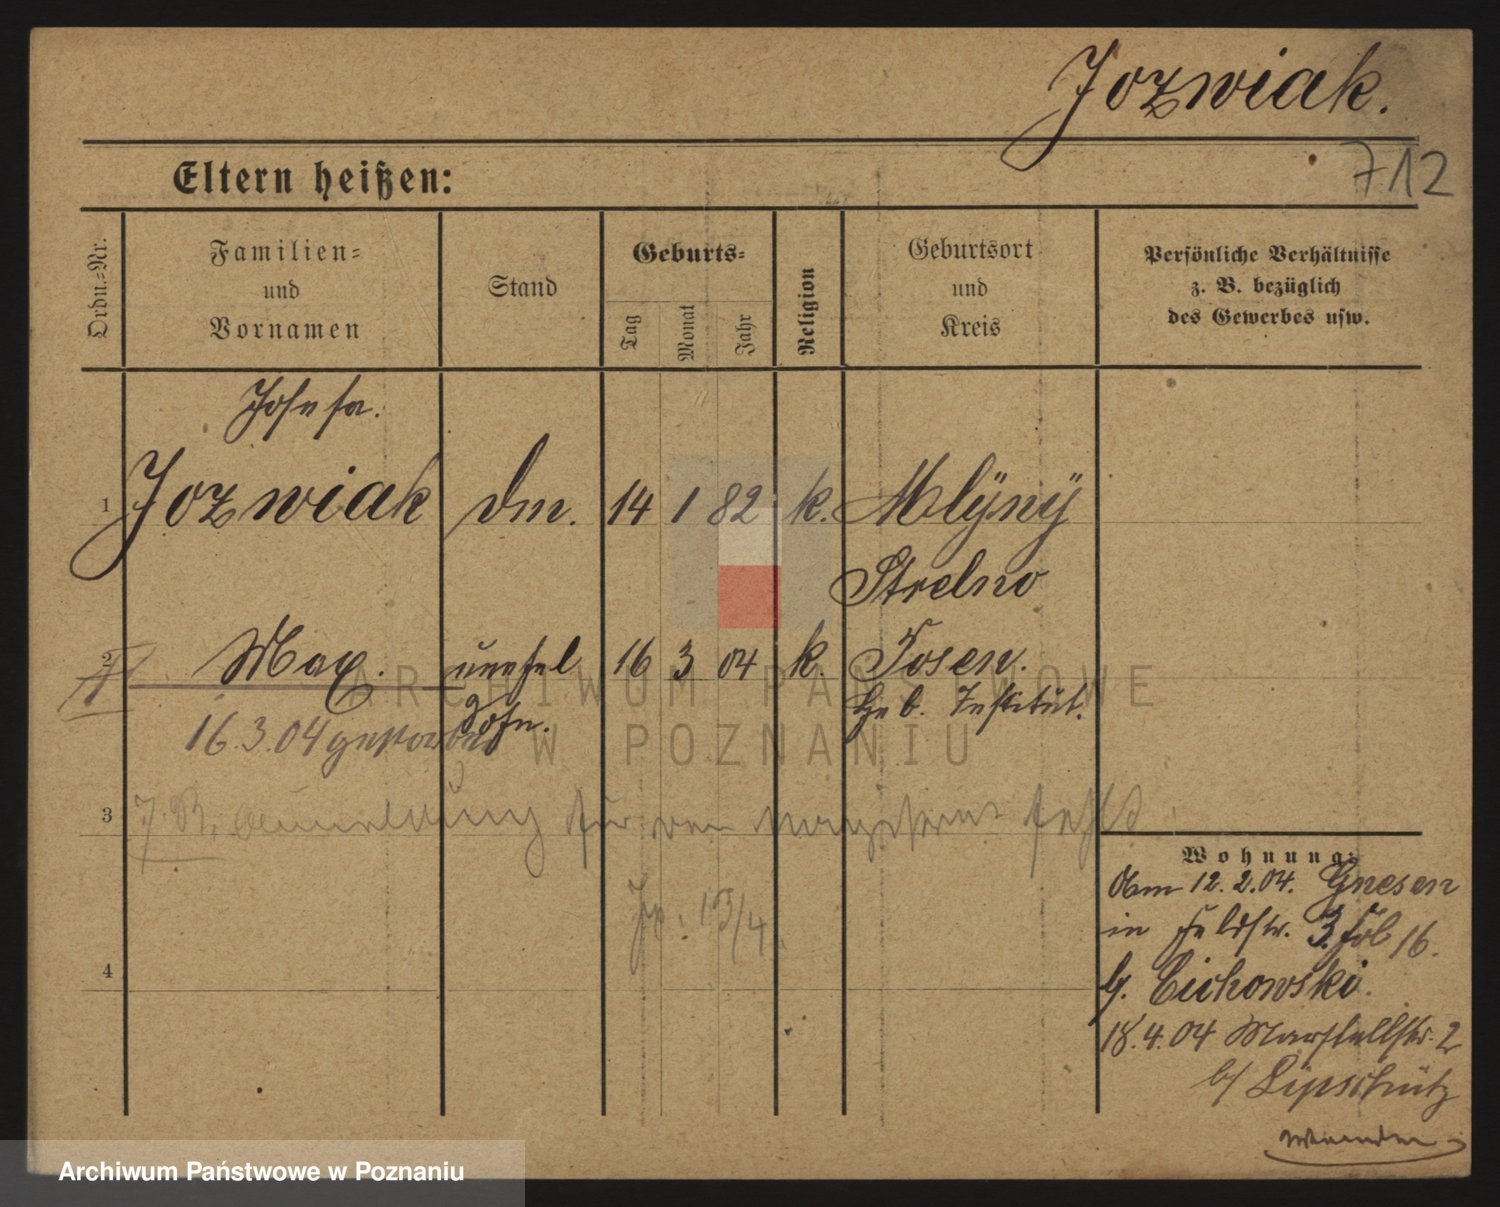 Jozwiak.
712
Eltern heißen:
Ordn.=Nr.
Familien=
und
Vornamen
Stand
Geburts=
Tag
Monat
Jahr
Religion
Geburtsort
und
Kreis
Persönliche Verhältnisse
z. B. bezüglich
des Gewerbes usw.
Josefa.
1 Jozwiak dm. 14 1 82 k. Mlÿnÿ
Strelno
2 Max. unehel 16 3 04 k. Posen.
Sohn. Heb. Institut.
16.3.04 gestorben
3 Anmeldung für fehlt
4
Wohnung:
12.2.04. Gnesen
in Feldstr. 3. 16.
b. Cichowski
18.4.04 Marstallstr. 2
b/ Lipschütz
ARCHIWUM PAŃSTWOWE
W POZNANIU
Archiwum Państwowe w Poznaniu